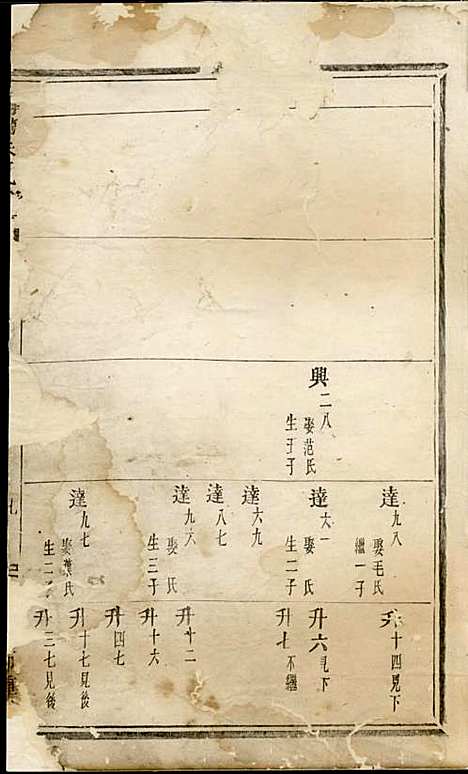 興二八
娶范氏
生
子
達九八
娶毛氏
繼一子
達六一
娶 氏
生二子
達六九
達八七
達九六
娶 氏
生三子
達九七
娶葉氏
生二子
升十四見下
升六見下
升七不繼
升十二
升十六
升四七
升十七見後
升三七見後